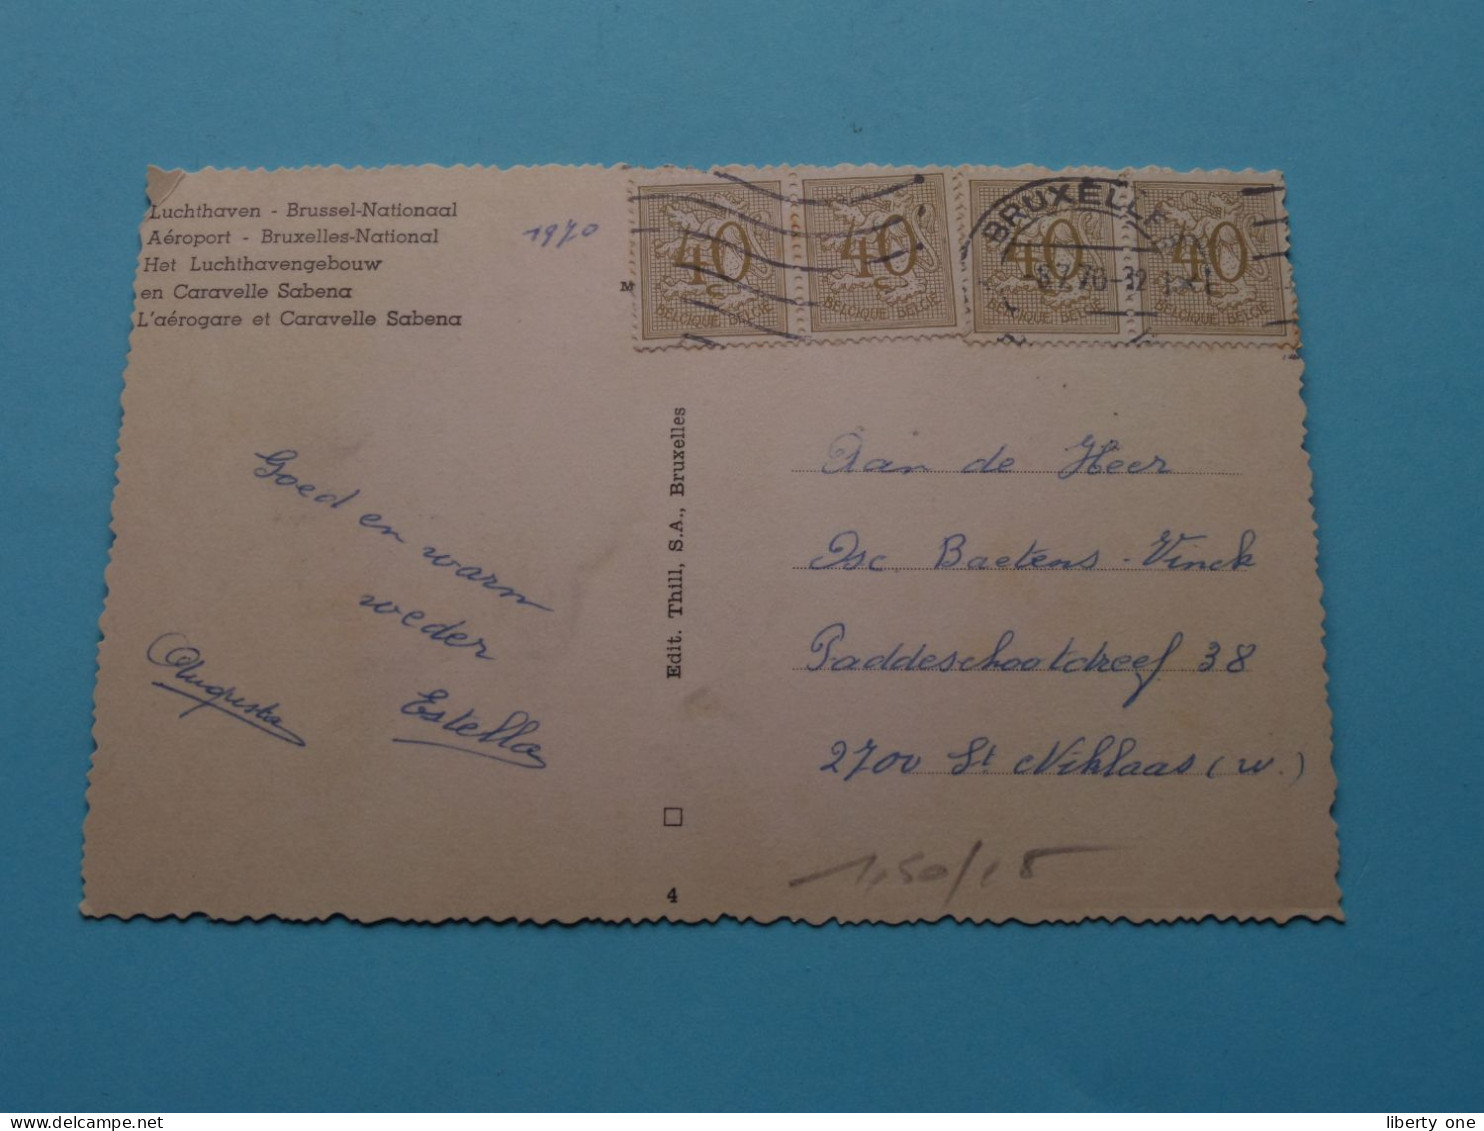 Luchthaven - Brussel-Nationaal
Aéroport - Bruxelles-National
Het Luchthavengebouw
en Caravelle Sabena
L'aérogare et Caravelle Sabena
1970
M
40 40 40 40
BELGIQUE-BELGIË BELGIQUE-BELGIË BELGIQUE-BELGIË BELGIQUE-BELGIË
BRUXELLES
70-32
Goed en warm
weder
Augusta
Estella
Edit. Thill, S.A., Bruxelles
4
Aan de Heer
Osc Baetens-Vinck
Paddeschootdreef 38
2700 St Niklaas (W.)
1,50/
liberty one